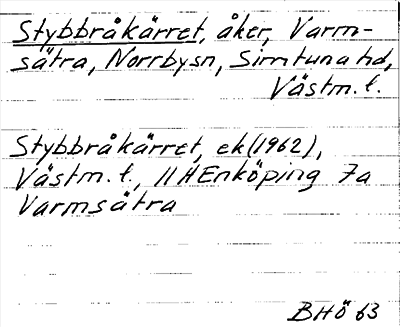 Stybbråkärret, åker, Varm-
sätra, Norrbysn, Simtuna hd,
Västm. l.
Stybbråkärret, ek (1962),
Västm. l., 11 H Enköping 7a
Varmsätra
BHÖ 63